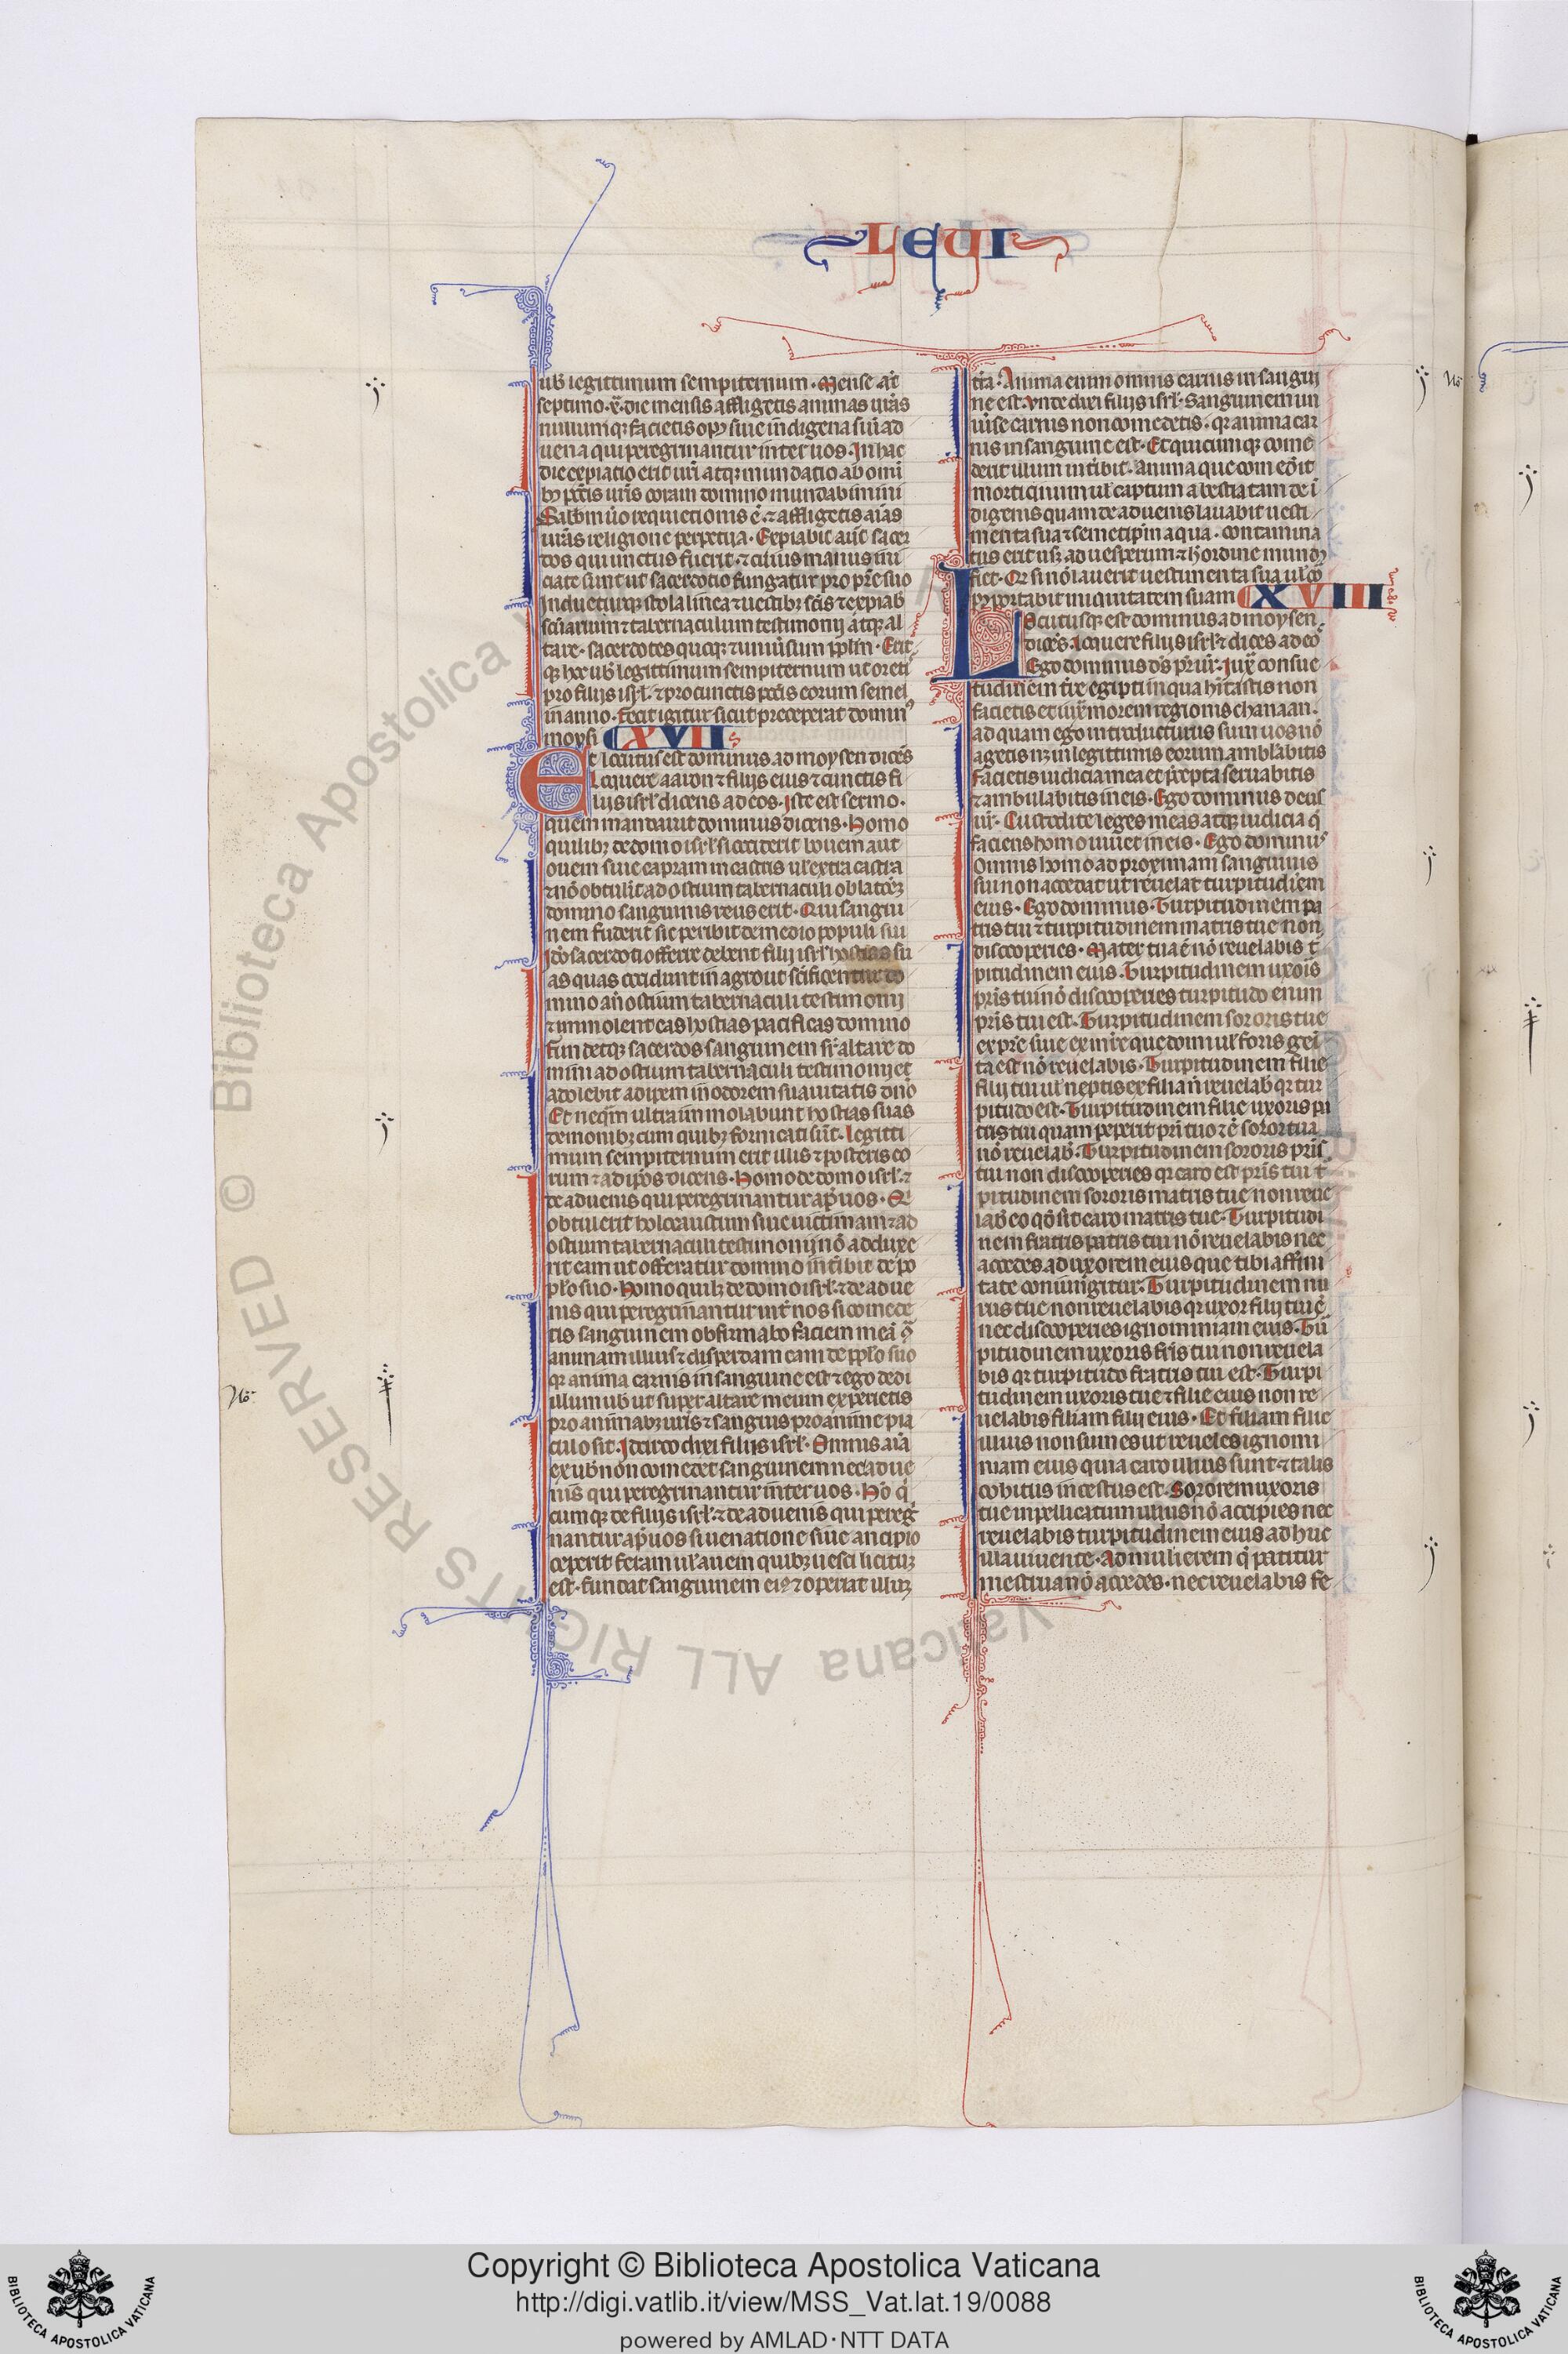 LEVI
ub̄ legittimum sempiternum · Mense aūt
septimo · x̄ · die mensis affligetis animas ur̄as
nullumq; facietis op̄ siue indigena siue ad
uena qui peregrinantur inter uos · In hac
die expiatio erit ur̄i atq; mundatio ab omi
b; pctis ur̄is coram domino mundabimini
Sabbm̄ u̇o requietionis ē · ⁊ affligetis aīas
ur̄as religione perpetua · Expiabit aūt sacer
dos qui unctus fuerit · ⁊ cuius manus ini
ciate sunt ut sacerdotio fungatur pro pr̄e suo
Indueturq; stola linea ⁊ uestib; sc̄is ⁊ expiab̄
sc̄uarium ⁊ tabernaculum testimonij atq; al
tare · sacerdotes quoq; ⁊ uniūsum pplm̄ · Erit
q; hoc ub̄ legittimum sempiternum ut oretꝭ
pro filijs isrl̄ · ⁊ pro cunctis pctīs eorum semel
in anno · fecit igitur sicut preceperat dominꝰ
moysi CXVII
Et locutus est dominus ad moysen dicēs
Loquere aaron ⁊ filijs eius ⁊ cunctis fi
lijs isrl̄ dicens ad eos · Iste est sermo ·
quem mandauit dominus dicens · Homo
quilib; de domo isrl̄ si occiderit bouem aut
ouem siue capram in castris ul̄ extra castra
⁊ nō obtulīt ad ostium tabernaculi oblatōez
domino sanguinis reus erit · Qui sangui
nem fuderit sic peribit de medio populi sui
Iō sacerdoti offerre debent filij isrl̄ hostias su
as quas occidunt in agro ut sc̄ificentur do
mino an̄ ostium tabernaculi testimonij
⁊ immolent eas hostias pacificas domino
fundetq; sacerdos sanguinem sr̄ altare do
mini ad ostium tabernaculi testimonij et
adolebit adipem in odorem suauitatis dn̄o
Et neq̄m ultra immolabunt hostias suas
demonib; cum quib; fornicati sūt · legitti
mum sempiternum erit illis ⁊ posteris eo
rum ⁊ ad ip̄os dicens · Homo de domo isrl̄ · ⁊
de aduenis qui peregrinantur ap̄ uos · Q̄
obtulerit holocaustum siue uictimam ⁊ ad
ostium tabernaculi testimonij nō adduxe
rit eam ut offeratur domino inībit de po
plo suo · Homo quib; de domo isrl̄ · ⁊ de adue
nis qui peregrinantur int̄ nos si comede
tis sanguinem obfirmabo faciem meā ꝯ̄
animam illius ⁊ disperdam eam de pplo suo
qr anima carnis in sanguine est ⁊ ego dedi
illum ub̄ ut super altare meum expietis
pro animab; ur̄is ⁊ sanguis pro anime pia
culo sit · Idcirco dixi filijs isrl̄ · Omnis aīa
ex ub̄ non comedet sanguinem nec adue
nis̄ qui peregrinantur inter uos · Hō q̇
cumq; de filijs isrl̄ · ⁊ de aduenis qui pereġ
nantur ap̄ uos si uenatione siue aucipio
ceperit feram ul̄ auem quib; uesci licituz
est · fundat sanguinem eiꝰ ⁊ operiat illuz
tr̄ra · Anima enim omnis carnis in sangui
ne est · vnde dixi filijs isrl̄ · Sanguinem un
iūse carnis non comedetis · qr anima car
nis in sanguine est · Et quicumq; come
derit illum inībit · anima que comedīt
morticinum ul̄ captum a bestia tam de ī
digenis quam de aduenis lauabit uesti
menta sua ⁊ semetip̄m in aqua · contamina
tus erit usq; ad uesperum ⁊ h̄ ordine mundꝰ
fiet · Qr si nō lauerit uestimenta sua ul̄ co
pꝰ portabit iniquitatem suam CXVIII
Locutusq; est dominus ad moysen
dicēs · Loquere filijs isrl̄ ⁊ dices ad eoˢ
Ego dominus ds̄ ur̄ · Iux̄ consue
tudinem tr̄re egipti in qua hītastis non
facietis et iux̄ morem regionis chanaan ·
ad quam ego introducturus sum uos nō
agetis nz in legittimis eorum amblabitis
facietis iudicia mea et p̄cepta seruabitis
⁊ ambulabitis in eis · Ego dominus deus
ur̄ · Custodite leges meas atq; iudicia q̄
faciens homo uiuet in eis · Ego dominuˢ
Omnis homo ad proximam sanguinis
sui non accedat ut reuelat turpitudinem
eius · Ego dominus · Turpitudinem pa
tris tui ⁊ turpitudinem matris tue non
discooperies · Mater tua ē nō reuelabis t̄
pitudinem eius · Turpitudinem uxoris
pr̄is tui nō discooperies turpitudo enim
pr̄is tui est · Turpitudinem sororis tue
ex pr̄e siue ex mr̄e que domi ul̄ foris geī
ta est nō reuelabis · Turpitudinem filie
filij tui ul̄ neptis ex filia n̄ reuelab̄ qr tur
pitudo est · Turpitudinem filie uxoris pa
tris tui quam peperit pr̄i tuo ⁊ ē soror tua
nō reuelab̄ · Turpitudinem sororis pr̄is
tui non discooperies qr caro est pr̄is tui t̄
pitudinem sororis matris tue non reue
lab̄ eo qd̄ sit caro matris tue · Turpitudi
nem fratris patris tui nō reuelabis nec
accedes ad uxorem eius que tibi affini
tate coniungitur · Turpitudinem nu
rus tue non reuelabis qr uxor filij tui ē
nec discooperies ignominiam eius · Tur̄
pitudinem uxoris fr̄is tui non reuela
bis qr turpitudo fratris tui est · Turpi
tudinem uxoris tue ⁊ filie eius non re
uelabis filiam filij eius · Et filiam filie
illius non sumes ut reueles ignomi
niam eius quia caro illius sunt ⁊ talis
cobitus incestus est · Sororem uxoris
tue in pellicatum illius nō accipies nec
reuelabis turpitudinem eius ad huc
illa uiuente · Ad mulierem q̄ patitur
mestrua nō accedes · nec reuelabis fe
No
No
Copyright © Biblioteca Apostolica Vaticana
http://digi.vatlib.it/view/MSS_Vat.lat.19/0088
powered by AMLAD·NTT DATA
BIBLIOTECA APOSTOLICA VATICANA
BIBLIOTECA APOSTOLICA VATICANA
© Biblioteca Apostolica Vaticana ALL RIGHTS RESERVED